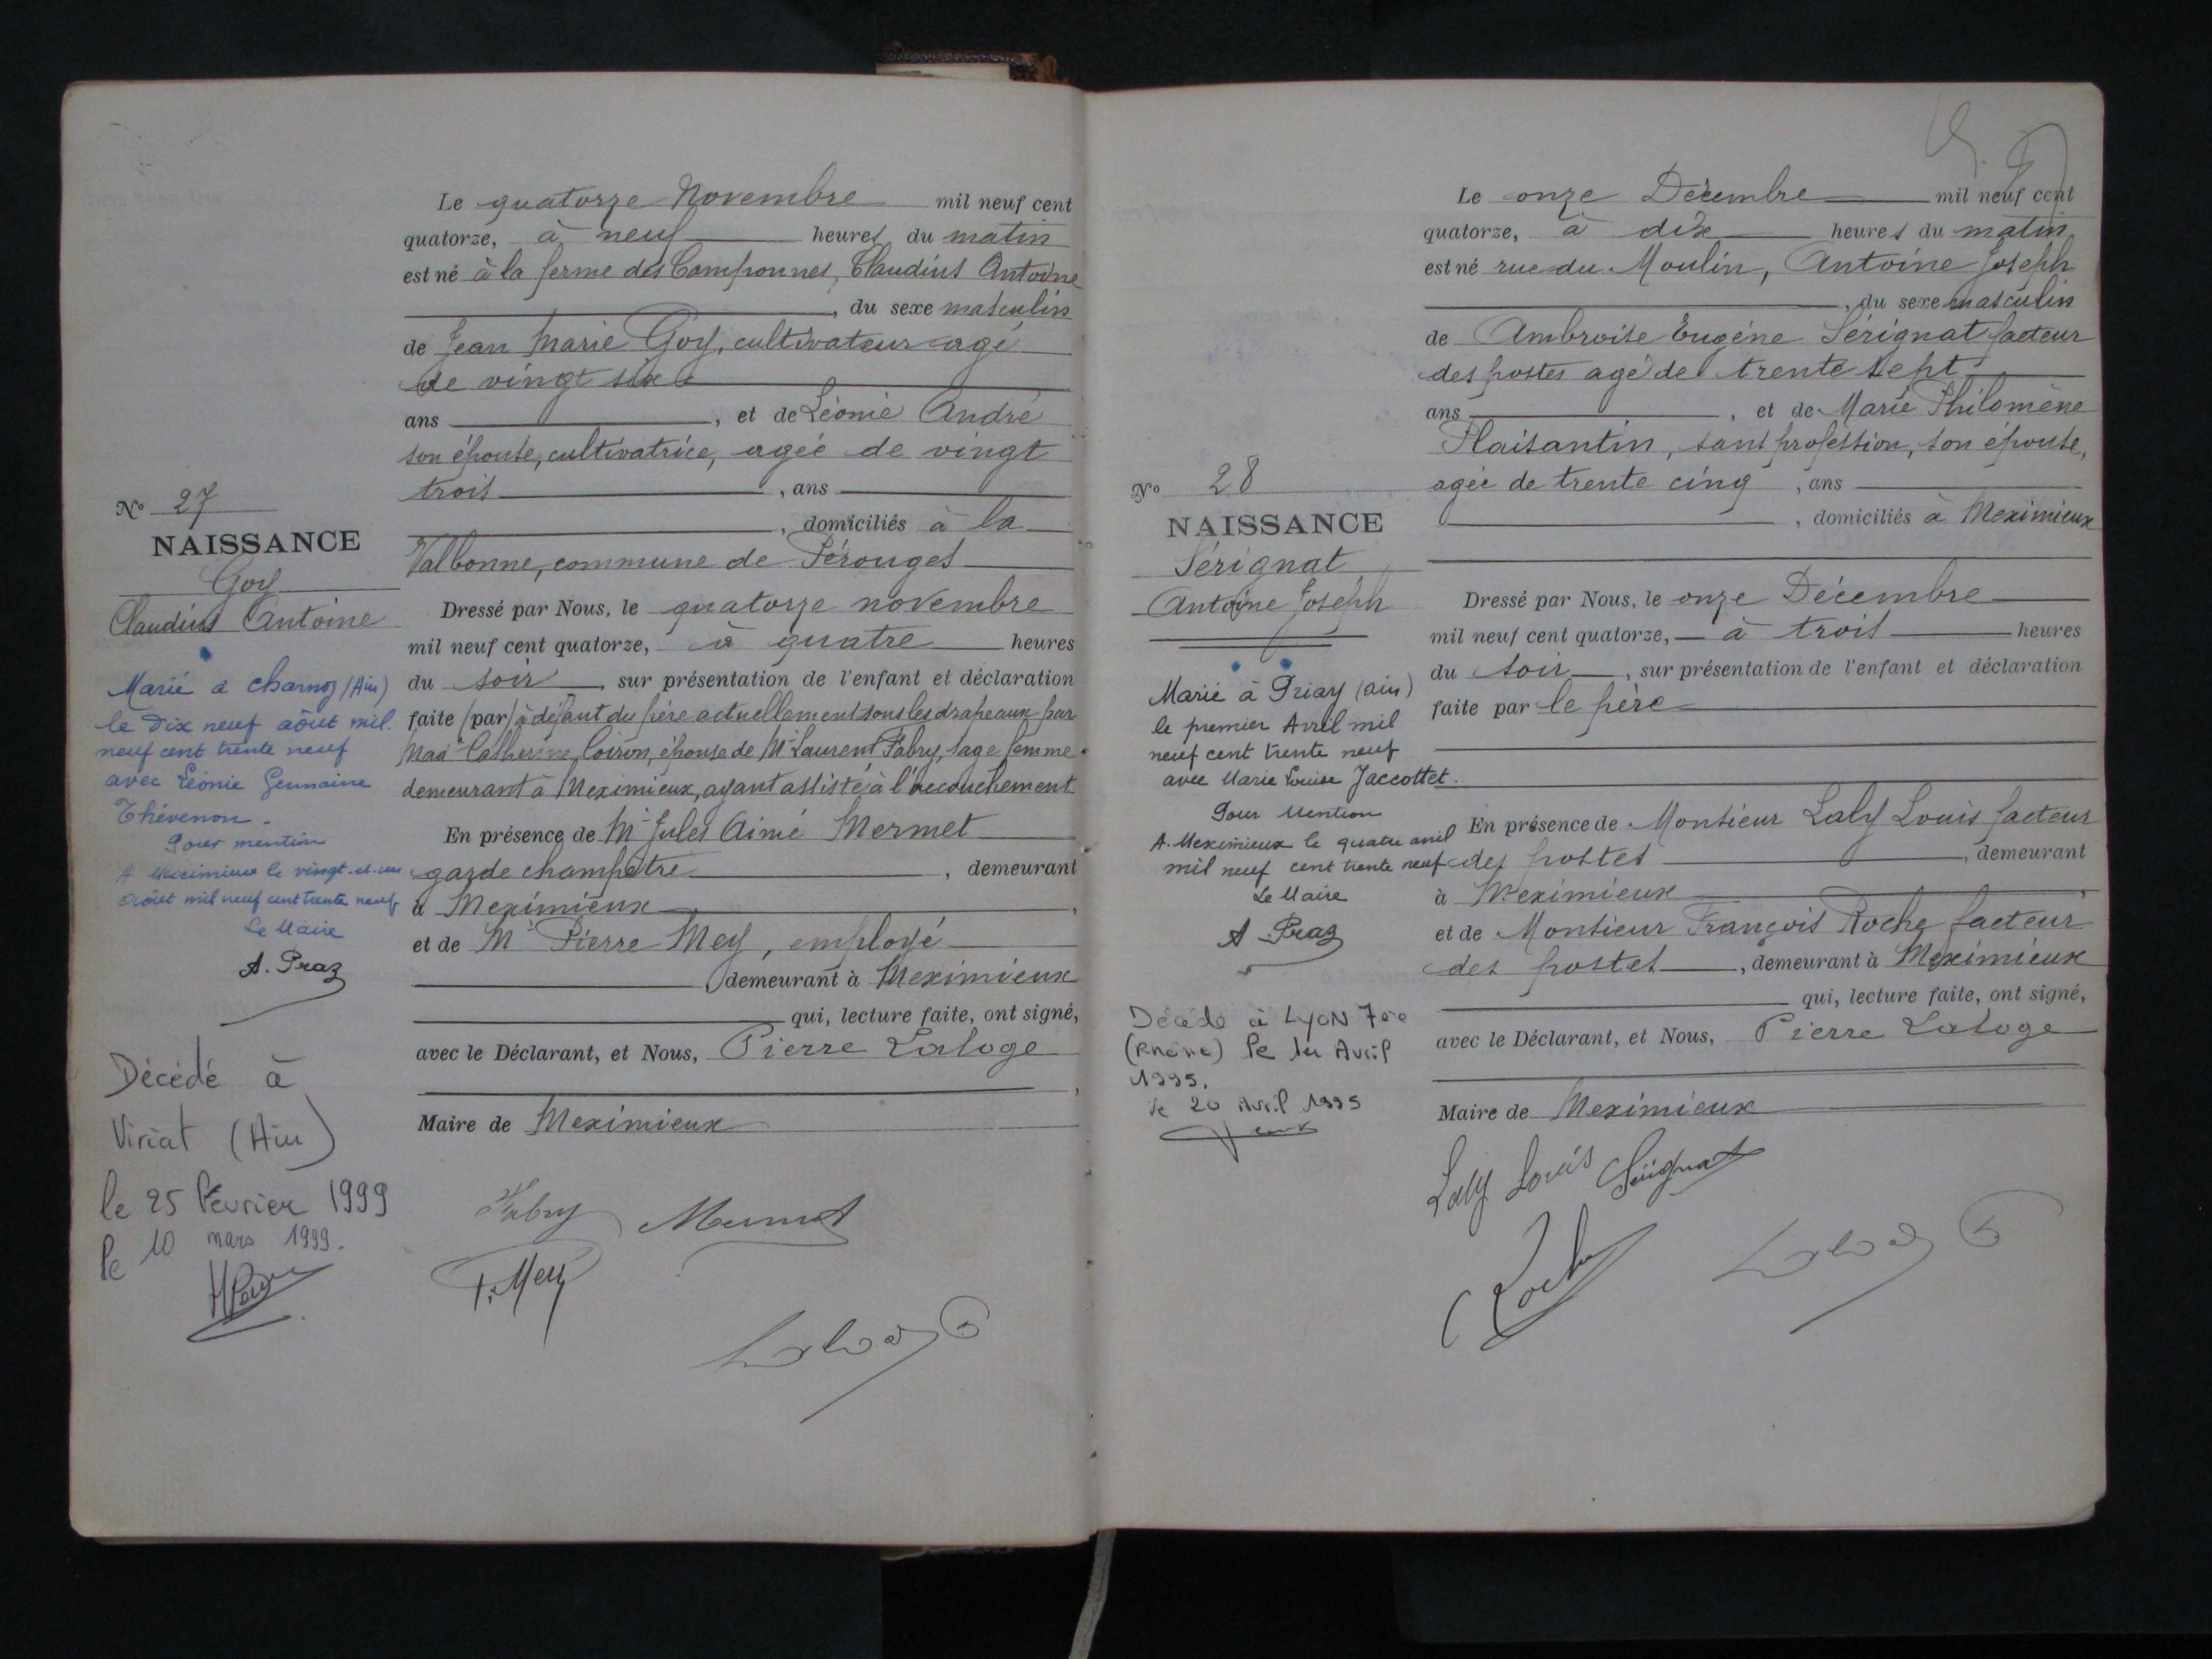 Le quatorze Novembre mil neuf cent
quatorze, à neuf heures du matin
est né à la ferme des Camponnes, Claudius Antoine
, du sexe masculin
de Jean Marie Goy, cultivateur agé
de vingt six
ans , et de Léonie André
son épouse, cultivatrice, agée de vingt
trois , ans
, domiciliés à la
Valbonne, commune de Pérouges
Dressé par Nous, le quatorze novembre
mil neuf cent quatorze, à quatre heures
du soir , sur présentation de l'enfant et déclaration
faite (par) à défaut du père actuellement sous les drapeaux par
Made Catherine Coiron, épouse de Mr Laurent Fabry, sage femme
demeurant à Meximieux, ayant assisté à l'accouchement
En présence de Mr Jules Aimé Mermet
garde champêtre , demeurant
à Meximieux ,
et de Mr Pierre Mey, employé
, demeurant à Meximieux
qui, lecture faite, ont signé,
avec le Déclarant, et Nous, Pierre Laloge
,
Maire de Meximieux
Fabry Mermet
P. Mey
Laloge
No 27
NAISSANCE
Goy
Claudius Antoine
Marié à Charnoz (Ain)
le Dix neuf août mil
neuf cent trente neuf
avec Léonie Germaine
Thévenon.
Pour mention
A Meximieux le vingt-et-un
Août mil neuf cent trente neuf
Le Maire
A. Praz
Décédé à
Viriat (Ain)
le 25 Février 1999
le 10 mars 1999.
Le onze Décembre mil neuf cent
quatorze, à dix heures du matin
est né rue du Moulin, Antoine Joseph
, du sexe masculin
de Ambroise Eugène Sérignat facteur
des postes agé de trente sept
ans , et de Marie Philomène
Plaisantin, sans profession, son épouse,
agée de trente cinq , ans
, domiciliés à Meximieux
Dressé par Nous, le onze Décembre
mil neuf cent quatorze, à trois heures
du soir , sur présentation de l'enfant et déclaration
faite par le père
En présence de Monsieur Laly Louis facteur
des postes , demeurant
à Meximieux ,
et de Monsieur François Roche facteur
des postes , demeurant à Meximieux
qui, lecture faite, ont signé,
avec le Déclarant, et Nous, Pierre Laloge
Maire de Meximieux
Laly Louis Sérignat
Roche
Laloge
No 28
NAISSANCE
Sérignat
Antoine Joseph
Marié à Priay (Ain)
le premier Avril mil
neuf cent trente neuf
avec Marie Louise Jaccottet.
Pour Mention
A. Meximieux le quatre avril
mil neuf cent trente neuf
Le Maire
A. Praz
Décédé à LYON 7ème
(Rhône) le 1er Avril
1995.
le 20 Avril 1995